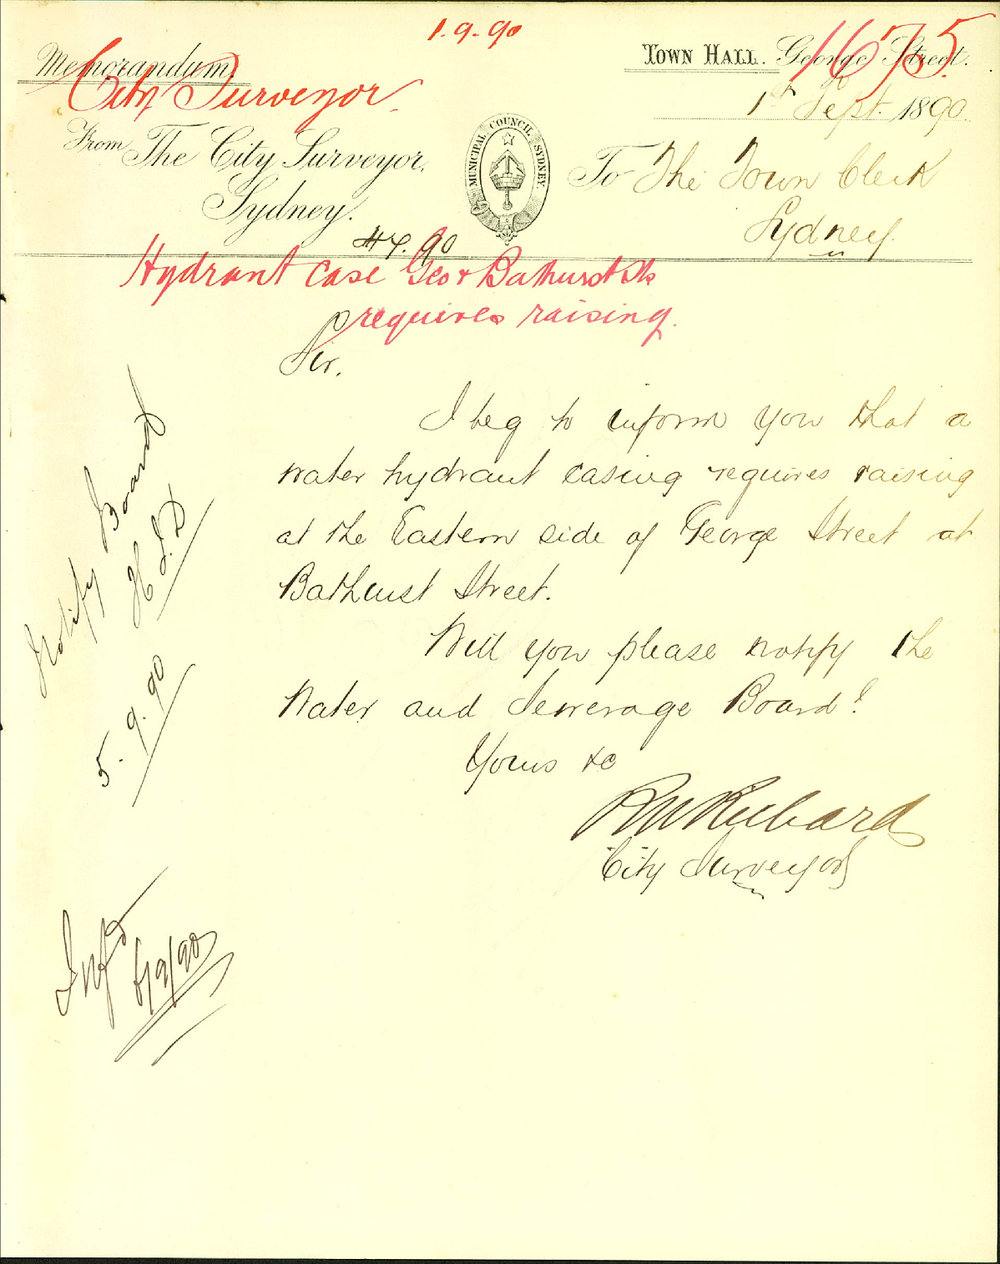 1.9.90
1675
Memorandum.
City Surveyor
TOWN HALL. George Street.
1st Sept. 1890
From The City Surveyor,
Sydney.
MUNICIPAL COUNCIL SYDNEY.
To The Town Clerk
Sydney.
Hydrant case Geo & Bathurst Sts
requires raising.
Sir,
I beg to inform you that a
water hydrant casing requires raising
at the Eastern side of George Street at
Bathurst Street.
Will you please notify the
Water and Sewerage Board?
Yours &c
City Surveyor
Notify Board
5.9.90
Infd
6/9/90